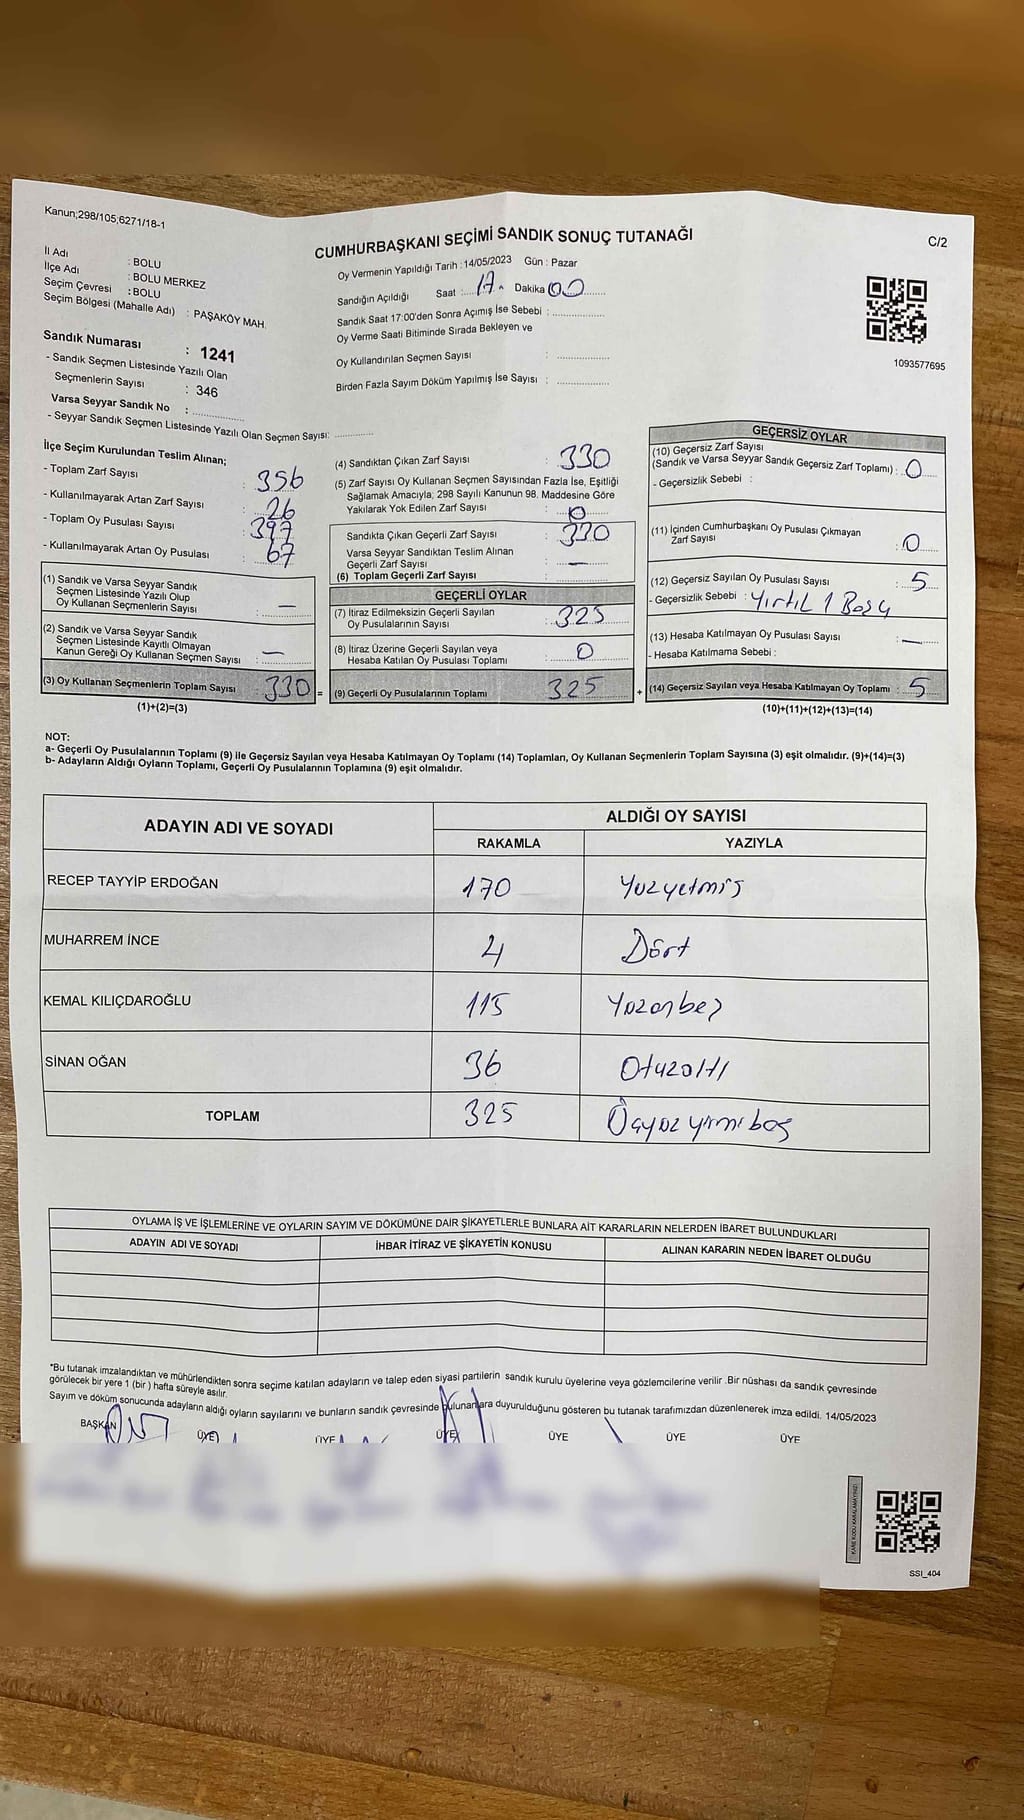 Kanun;298/105;6271/18-1
C/2
CUMHURBAŞKANI SEÇİMİ SANDIK SONUÇ TUTANAĞI
Oy Vermenin Yapıldığı Tarih : 14/05/2023 Gün : Pazar
İl Adı : BOLU
İlçe Adı : BOLU MERKEZ
Seçim Çevresi : BOLU
Seçim Bölgesi (Mahalle Adı) : PAŞAKÖY MAH.
Sandığın Açıldığı Saat : 17. Dakika 00
Sandık Saat 17:00'den Sonra Açımış İse Sebebi :
Oy Verme Saati Bitiminde Sırada Bekleyen ve
Oy Kullandırılan Seçmen Sayısı :
Birden Fazla Sayım Döküm Yapılmış İse Sayısı :
1093577695
Sandık Numarası : 1241
- Sandık Seçmen Listesinde Yazılı Olan
Seçmenlerin Sayısı : 346
Varsa Seyyar Sandık No :
- Seyyar Sandık Seçmen Listesinde Yazılı Olan Seçmen Sayısı:
İlçe Seçim Kurulundan Teslim Alınan;
- Toplam Zarf Sayısı : 356
- Kullanılmayarak Artan Zarf Sayısı : 26
- Toplam Oy Pusulası Sayısı : 397
- Kullanılmayarak Artan Oy Pusulası : 67
(1) Sandık ve Varsa Seyyar Sandık
Seçmen Listesinde Yazılı Olup
Oy Kullanan Seçmenlerin Sayısı : —
(2) Sandık ve Varsa Seyyar Sandık
Seçmen Listesinde Kayıtlı Olmayan
Kanun Gereği Oy Kullanan Seçmen Sayısı : —
(3) Oy Kullanan Seçmenlerin Toplam Sayısı 330 =
(1)+(2)=(3)
(4) Sandıktan Çıkan Zarf Sayısı : 330
(5) Zarf Sayısı Oy Kullanan Seçmen Sayısından Fazla İse, Eşitliği
Sağlamak Amacıyla; 298 Sayılı Kanunun 98. Maddesine Göre
Yakılarak Yok Edilen Zarf Sayısı : 0
Sandıkta Çıkan Geçerli Zarf Sayısı : 330
Varsa Seyyar Sandıktan Teslim Alınan
Geçerli Zarf Sayısı : —
(6) Toplam Geçerli Zarf Sayısı :
GEÇERLİ OYLAR
(7) İtiraz Edilmeksizin Geçerli Sayılan
Oy Pusulalarının Sayısı : 325
(8) İtiraz Üzerine Geçerli Sayılan veya
Hesaba Katılan Oy Pusulası Toplamı : 0
(9) Geçerli Oy Pusulalarının Toplamı 325 +
GEÇERSİZ OYLAR
(10) Geçersiz Zarf Sayısı
(Sandık ve Varsa Seyyar Sandık Geçersiz Zarf Toplamı) : 0
- Geçersizlik Sebebi :
(11) İçinden Cumhurbaşkanı Oy Pusulası Çıkmayan
Zarf Sayısı : 0
(12) Geçersiz Sayılan Oy Pusulası Sayısı : 5
- Geçersizlik Sebebi : Yırtıl 1
(13) Hesaba Katılmayan Oy Pusulası Sayısı : —
- Hesaba Katılmama Sebebi :
(14) Geçersiz Sayılan veya Hesaba Katılmayan Oy Toplamı : 5
(10)+(11)+(12)+(13)=(14)
NOT:
a- Geçerli Oy Pusulalarının Toplamı (9) ile Geçersiz Sayılan veya Hesaba Katılmayan Oy Toplamı (14) Toplamları, Oy Kullanan Seçmenlerin Toplam Sayısına (3) eşit olmalıdır. (9)+(14)=(3)
b- Adayların Aldığı Oyların Toplamı, Geçerli Oy Pusulalarının Toplamına (9) eşit olmalıdır.
ADAYIN ADI VE SOYADI
ALDIĞI OY SAYISI
RAKAMLA YAZIYLA
RECEP TAYYİP ERDOĞAN 170 Yüzyetmiş
MUHARREM İNCE 4 Dört
KEMAL KILIÇDAROĞLU 115 Yüzonbeş
SİNAN OĞAN 36 Otuzaltı
TOPLAM 325 Üçyüz yirmibeş
OYLAMA İŞ VE İŞLEMLERİNE VE OYLARIN SAYIM VE DÖKÜMÜNE DAİR ŞİKAYETLERLE BUNLARA AİT KARARLARIN NELERDEN İBARET BULUNDUKLARI
ADAYIN ADI VE SOYADI İHBAR İTİRAZ VE ŞİKAYETİN KONUSU ALINAN KARARIN NEDEN İBARET OLDUĞU
*Bu tutanak imzalandıktan ve mühürlendikten sonra seçime katılan adayların ve talep eden siyasi partilerin sandık kurulu üyelerine veya gözlemcilerine verilir .Bir nüshası da sandık çevresinde
görülecek bir yere 1 (bir ) hafta süreyle asılır.
Sayım ve döküm sonucunda adayların aldığı oyların sayılarını ve bunların sandık çevresinde bulunanlara duyurulduğunu gösteren bu tutanak tarafımızdan düzenlenerek imza edildi. 14/05/2023
BAŞKAN ÜYE ÜYE ÜYE ÜYE ÜYE ÜYE
KARE KODU KARALAMAYINIZ!
SSI_404